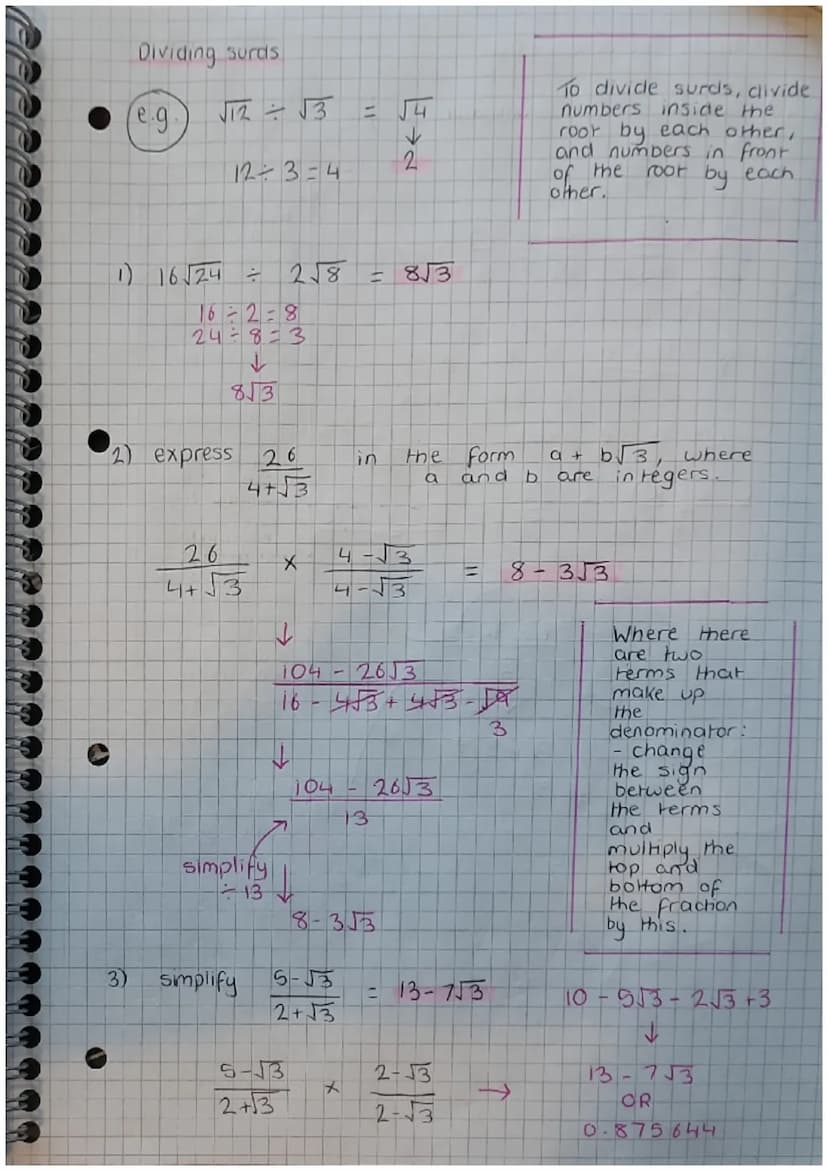 Dividing surds
e.g. √12 ÷ √3 = √4
↓
12 ÷ 3 = 4 2
To divide surds, divide
numbers inside the
root by each other,
and numbers in front
of the root by each
other.
1) 16√24 ÷ 2√8 = 8√3
16 ÷ 2 = 8
24 ÷ 8 = 3
↓
8√3
2) express 26/(4+√3) in the form a + b√3, where
a and b are integers.
26/(4+√3) × (4-√3)/(4-√3) = 8 - 3√3
↓
104 - 26√3
16 - 4√3 + 4√3 - √9
3
↓
104 - 26√3
13
simplify
÷ 13
↓
8 - 3√3
Where there
are two
terms that
make up
the
denominator:
- change
the sign
between
the terms
and
multiply the
top and
bottom of
the fraction
by this.
3) simplify (5-√3)/(2+√3) = 13 - 7√3
(5-√3)/(2+√3) × (2-√3)/(2-√3) →
10 - 5√3 - 2√3 + 3
↓
13 - 7√3
OR
0.875644